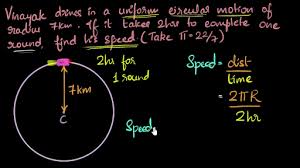 Vinayak drives in a uniform circular motion of
radius 7km. If it takes 2hr to complete one
round, find his speed (Take π = 22/7)
2hr for
1 round
7km
C
Speed = dist
time
= 2πR
2hr
Speed